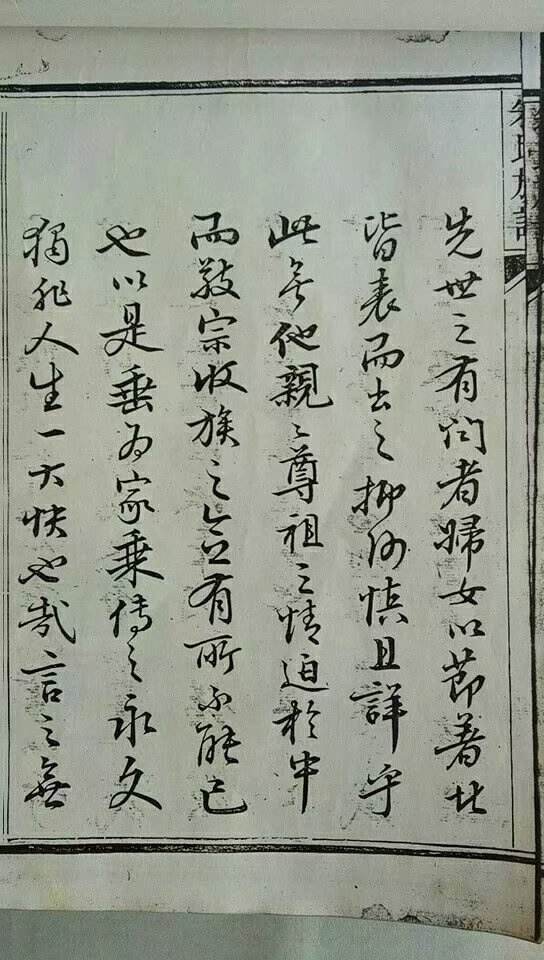 朱氏族譜
先世之有聞者婦女以節著
皆表而出之抑何慎且詳乎
此無他親々尊祖之情迫於中
而敬宗收族之念有所不能已
也以是垂為家乘傳之永久
獨非人生一大快也哉言之無